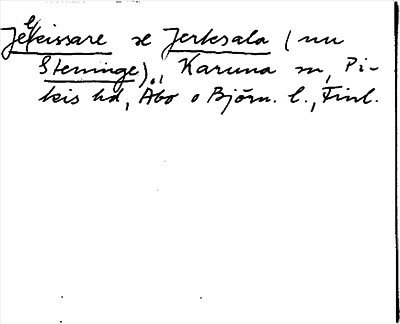 Jerkissare se Jerksala (nu
Steninge)., Karuna sn, Pi-
kis hd, Åbo o Björn. l., Finl.